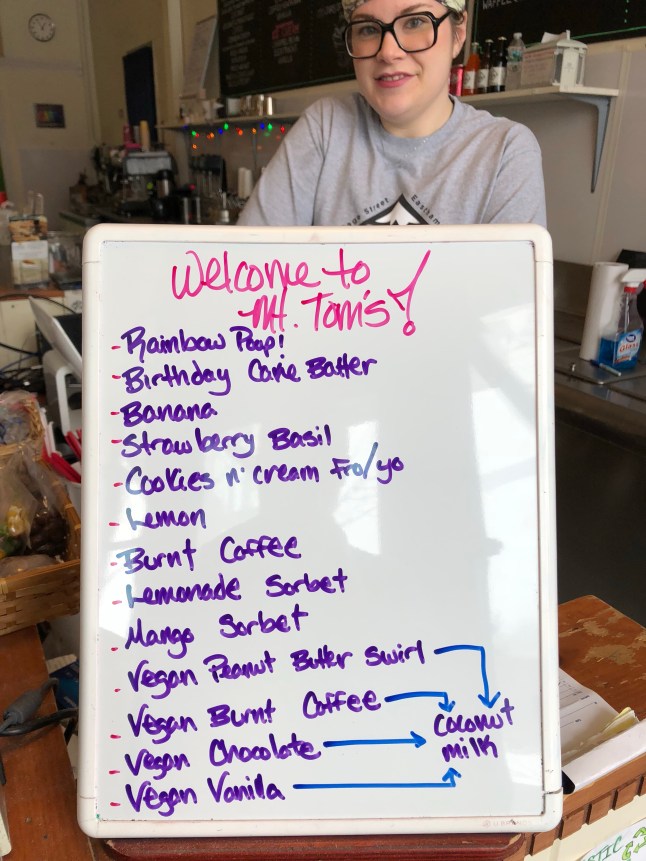 Street Eastham
Welcome to
Mt. Tom's!
- Rainbow Poop!
- Birthday Cake Batter
- Banana
- Strawberry Basil
- Cookies n' cream fro/yo
- Lemon
- Burnt Coffee
- Lemonade Sorbet
- Mango Sorbet
- Vegan Peanut Butter Swirl
- Vegan Burnt Coffee
- Vegan Chocolate
- Vegan Vanilla
Coconut
milk